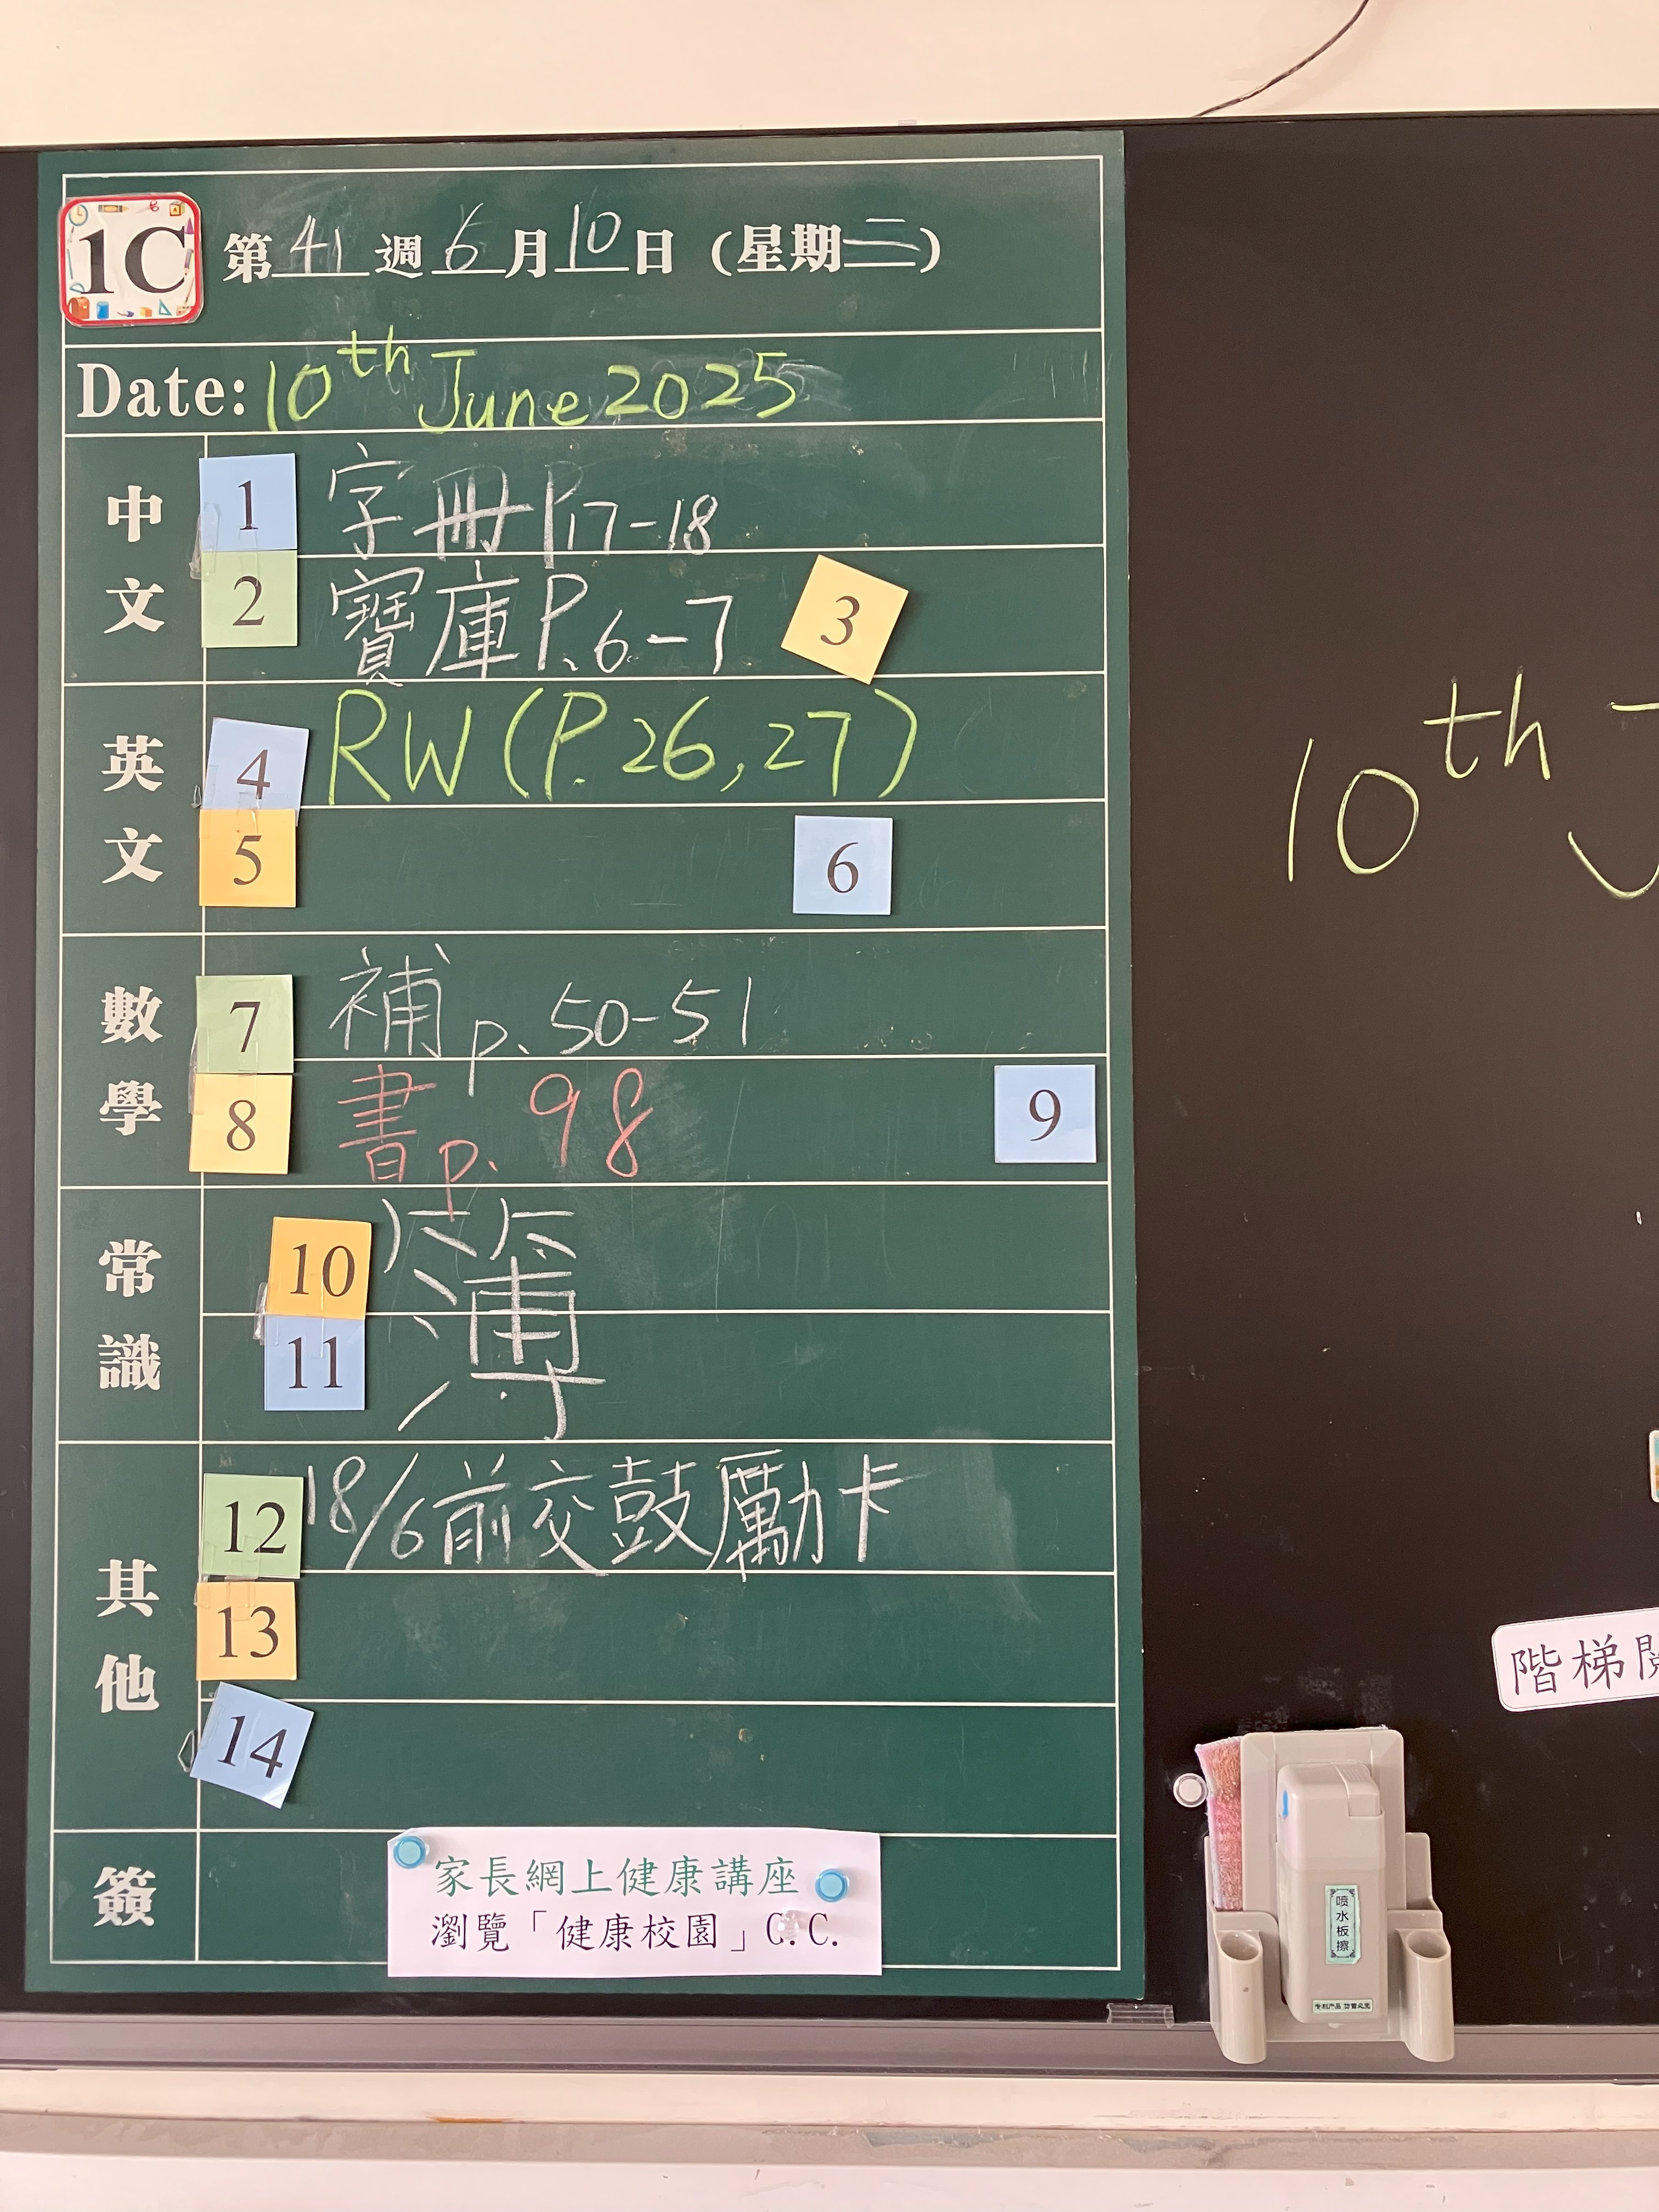 1C 第 41 週 6 月 10 日 (星期二)
Date: 10th June 2025
中文
1 字冊 P17-18
2 寶庫 P.6-7 3
英文
4 RW (P.26,27)
5 6
數學
7 補 p.50-51
8 書 p.98 9
常識
10
11
簿
其他
12 18/6前交鼓勵卡
13
14
簽
家長網上健康講座
瀏覽「健康校園」C.C.
10th J
階梯
喷水板擦